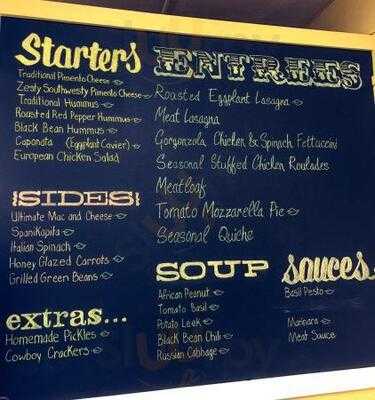 Starters
Traditional Pimento Cheese
Zesty Southwesty Pimento Cheese
Traditional Hummus
Roasted Red Pepper Hummus
Black Bean Hummus
Caponata (Eggplant Cavier)
European Chicken Salad
SIDES
Ultimate Mac and Cheese
SpaniKopita
Italian Spinach
Honey Glazed Carrots
Grilled Green Beans
extras...
Homemade Pickles
Cowboy Crackers
ENTREES
Roasted Eggplant Lasagna
Meat Lasagna
Gorgonzola, Chicken & Spinach Fettuccini
Seasonal Stuffed Chicken Roulades
Meatloaf
Tomato Mozzarella Pie
Seasonal Quiche
SOUP
African Peanut
Tomato Basil
Potato Leek
Black Bean Chili
Russian Cabbage
sauces
Basil Pesto
Marinara
Meat Sauce